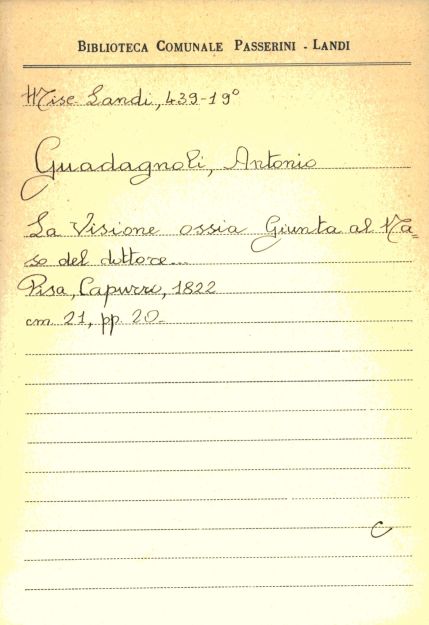 BIBLIOTECA COMUNALE PASSERINI - LANDI
Misc. Landi, 439-19°
Guadagnoli, Antonio
La Visione ossia Giunta al Na=
so del dottore...
Pisa, Capurro, 1822
cm. 21, pp. 20.
C